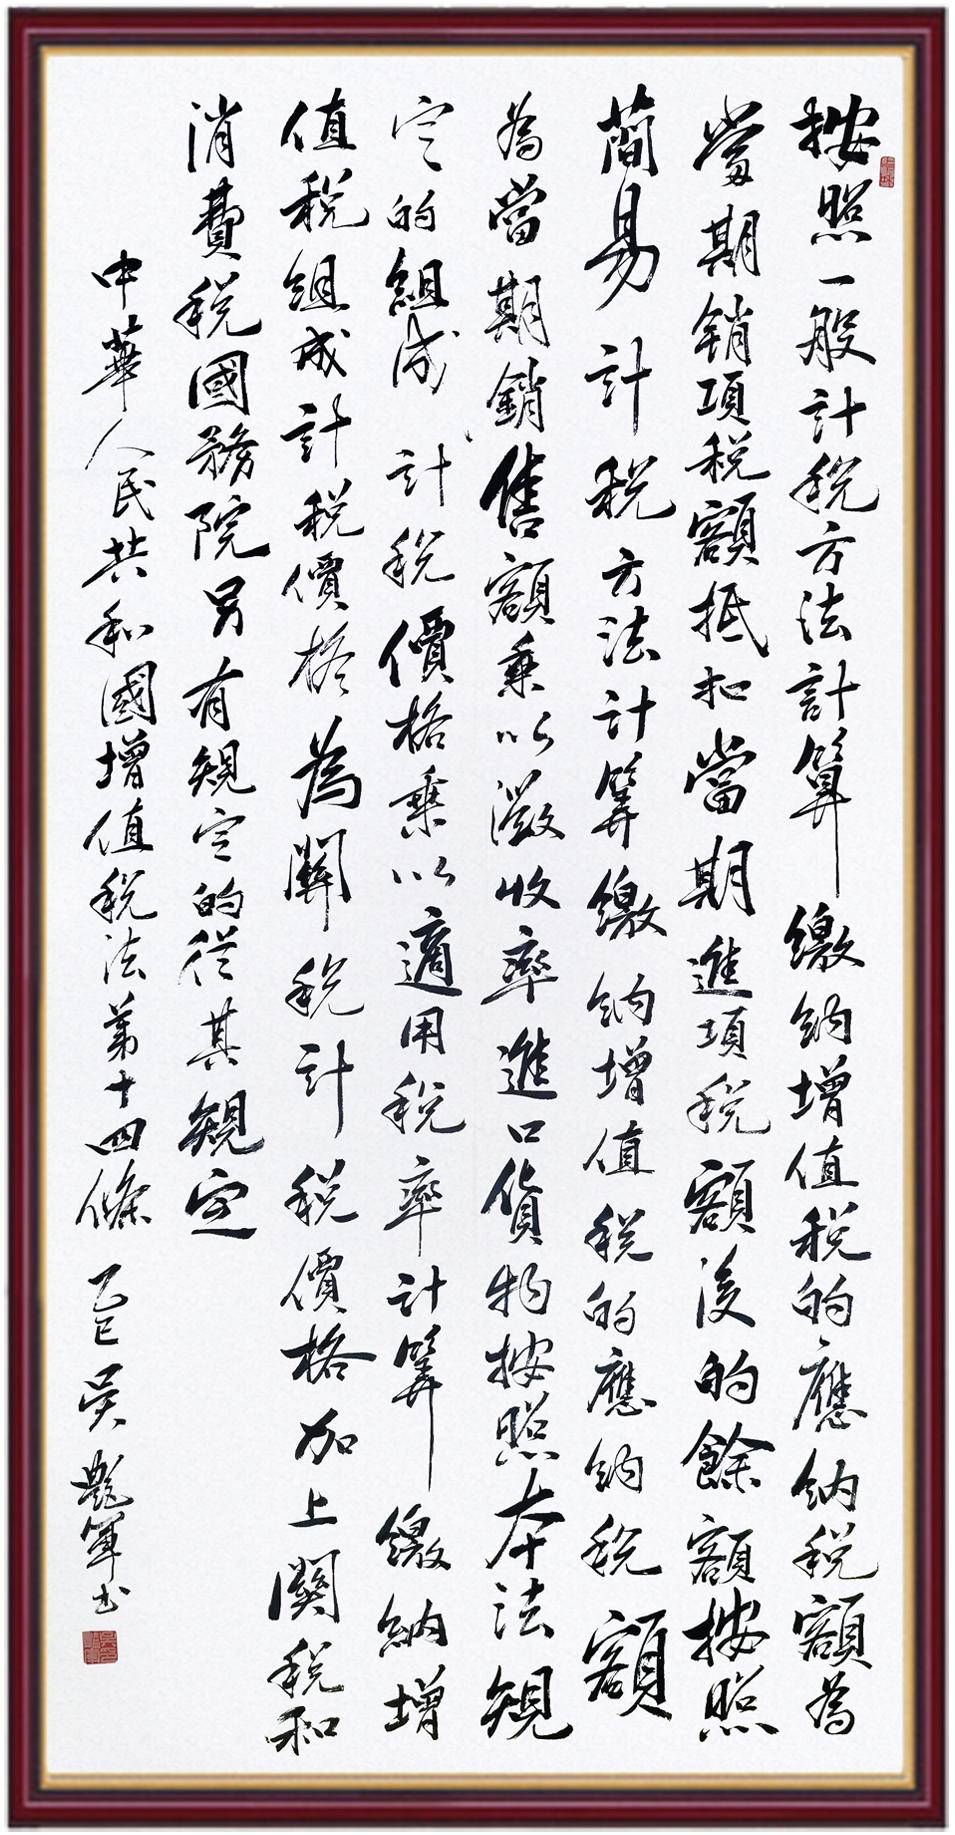 按照一般計税方法計算繳納增值税的應納税額為
當期銷項税額抵扣當期進項税額後的餘額按照
簡易計税方法計算繳納增值税的應納税額
為當期銷售額乘以徵收率進口貨物按照本法規
定的組成計税價格乘以適用税率計算繳納增
值税組成計税價格為關税計税價格加上關税和
消費税國務院另有規定的從其規定
中華人民共和國增值税法第十四條 乙巳吳艷軍書